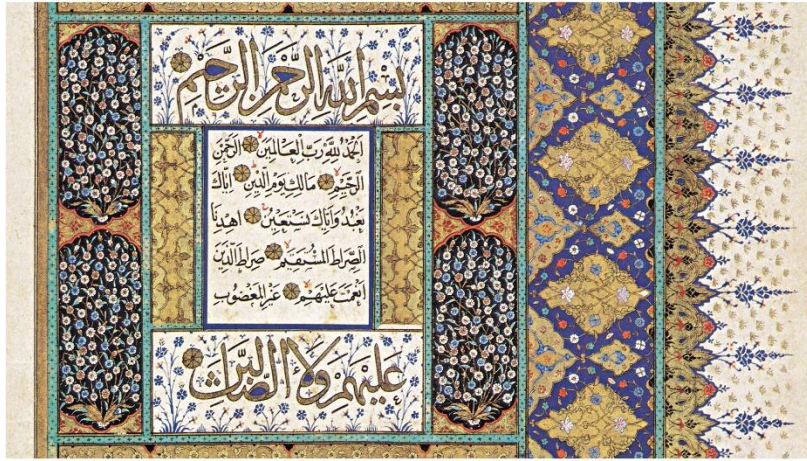 بِسْمِ اللَّهِ الرَّحْمٰنِ الرَّحِيْمِ
اَلْحَمْدُ لِلّٰهِ رَبِّ الْعَالَمِيْنَ اَلرَّحْمٰنِ
الرَّحِيْمِ مَالِكِ يَوْمِ الدِّيْنِ اِيَّاكَ
نَعْبُدُ وَاِيَّاكَ نَسْتَعِيْنُ اِهْدِنَا
الصِّرَاطَ الْمُسْتَقِيْمَ صِرَاطَ الَّذِيْنَ
اَنْعَمْتَ عَلَيْهِمْ غَيْرِ الْمَغْضُوبِ
عَلَيْهِمْ وَلَا الضَّالِّيْنَ